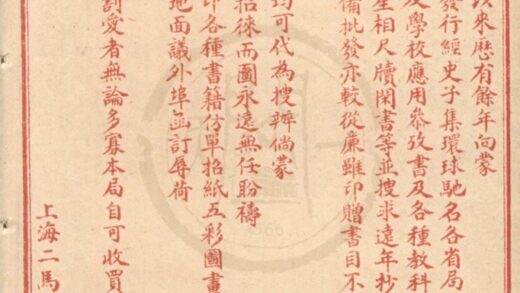 以來歷有餘年向蒙
發行經史子集環球馳名各省局
及學校應用叅攷書及各種教科
星相尺牘閑書等並搜求遠年抄
備批發亦較從廉雖印贈書目不
均可代為搜辦倘蒙
招徠而圖永遠無任盼禱
印各種書籍仿單招紙五彩圖畫
地面議外埠函訂辱荷
割愛者無論多寡本局自可收買
上海二馬